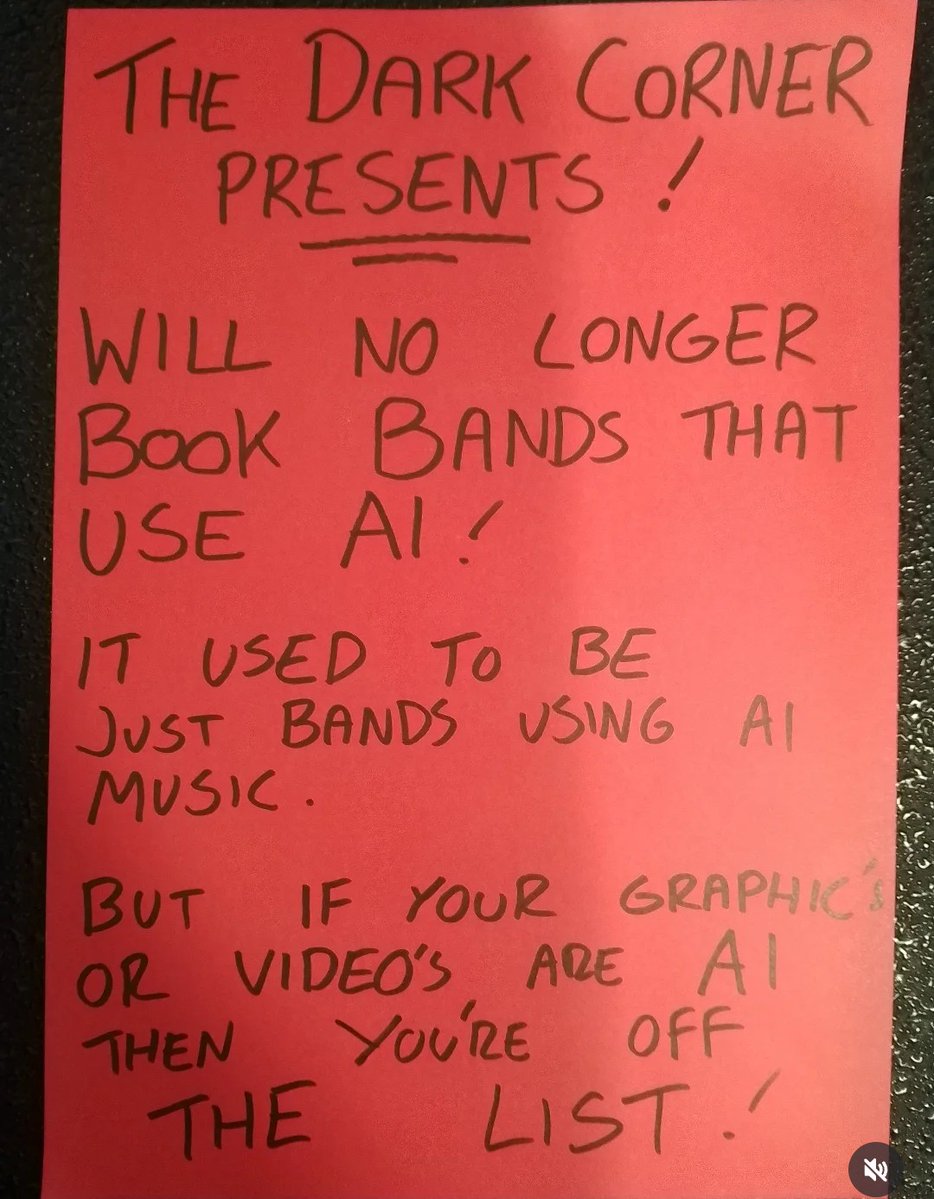 THE DARK CORNER
PRESENTS!
WILL NO LONGER
BOOK BANDS THAT
USE AI!
IT USED TO BE
JUST BANDS USING AI
MUSIC.
BUT IF YOUR GRAPHIC'S
OR VIDEO'S ARE AI
THEN YOU'RE OFF
THE LIST!